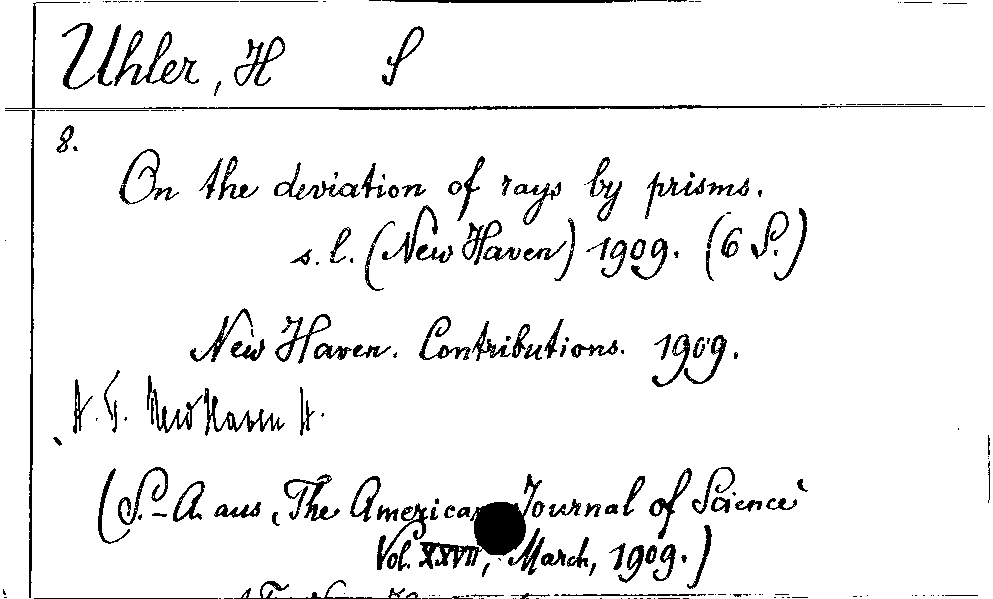 Uhler, H S
8.
On the deviation of rays by prisms.
s. l. (New Haven) 1909. (6 S.)
New Haven. Contributions. 1909.
New Haven 4.
(S.-A. aus, The American Journal of Science‘
Vol. XXVII, March, 1909.)